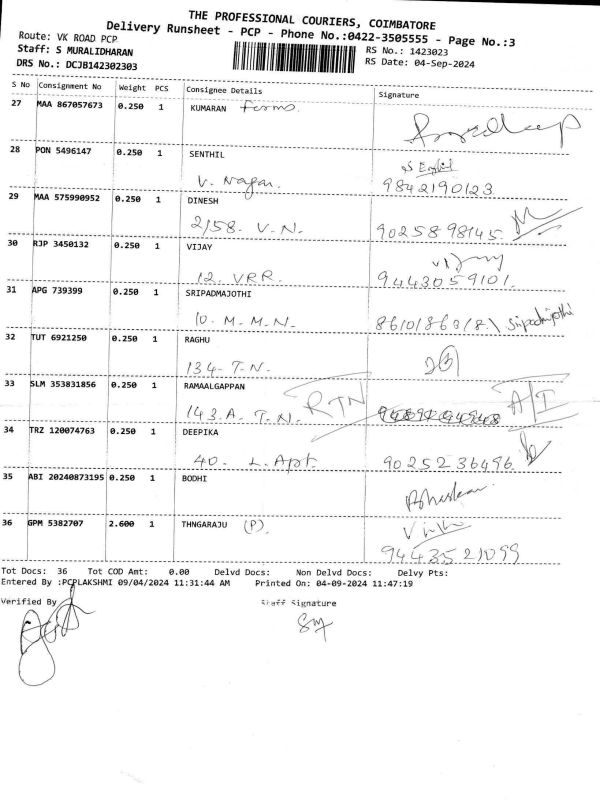 THE PROFESSIONAL COURIERS, COIMBATORE
Delivery Runsheet - PCP - Phone No.:0422-3505555 - Page No.:3
Route: VK ROAD PCP
RS No.: 1423023
Staff: S MURALIDHARAN
RS Date: 04-Sep-2024
DRS No.: DCJB142302303
S No Consignment No Weight PCS Consignee Details Signature
27 MAA 867057673 0.250 1 KUMARAN Farms
28 PON 5496147 0.250 1 SENTHIL
V. Nagar. 9842190123
29 MAA 575990952 0.250 1 DINESH
2/58. V.N. 9025898145
30 RJP 3450132 0.250 1 VIJAY
12. VRR. 9443059101.
31 APG 739399 0.250 1 SRIPADMAJOTHI
10. M.M.N. Sripadmajothi
32 TUT 6921250 0.250 1 RAGHU
134. T.N.
33 SLM 353831856 0.250 1 RAMAALGAPPAN
143.A. T.N. RTN A/I
34 TRZ 120074763 0.250 1 DEEPIKA
40. L. Apt. 9025236496
35 ABI 20240873195 0.250 1 BODHI
36 GPM 5382707 2.600 1 THNGARAJU (P)
9443521099
Tot Docs: 36 Tot COD Amt: 0.00 Delvd Docs: Non Delvd Docs: Delvy Pts:
Entered By :PCPLAKSHMI 09/04/2024 11:31:44 AM Printed On: 04-09-2024 11:47:19
Verified By Staff Signature